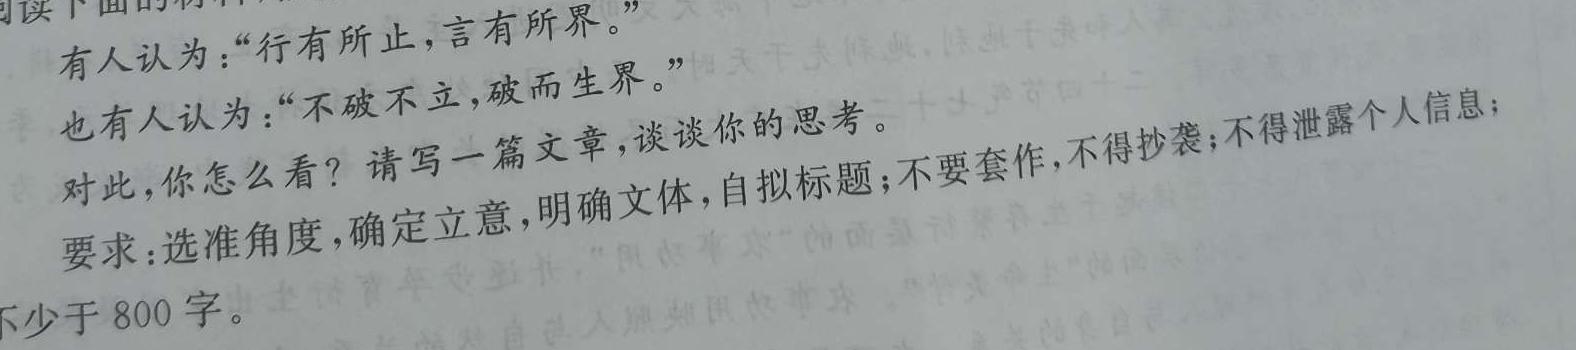 阅读下面的材料
有人认为:“行有所止,言有所界。”
也有人认为:“不破不立,破而生界。”
对此,你怎么看?请写一篇文章,谈谈你的思考。
要求:选准角度,确定立意,明确文体,自拟标题;不要套作,不得抄袭;不得泄露个人信息;
不少于 800 字。